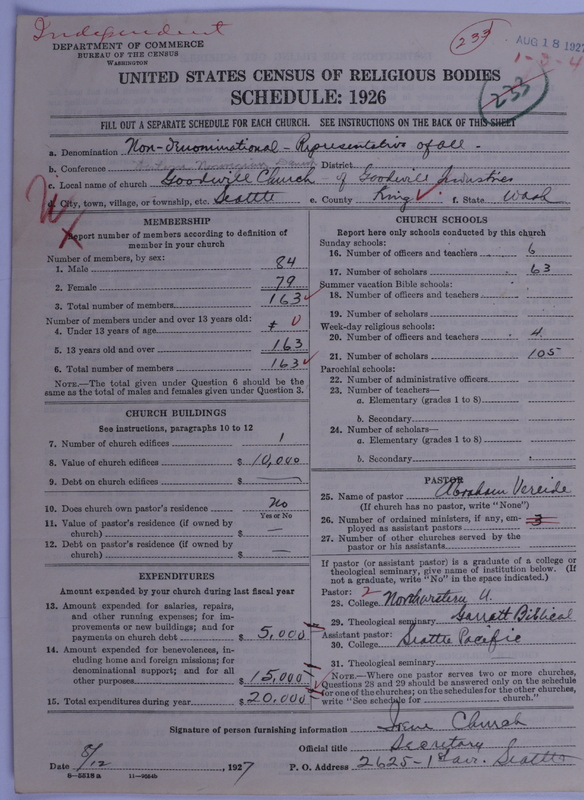 Independent
233
AUG 18 1927
DEPARTMENT OF COMMERCE
BUREAU OF THE CENSUS
WASHINGTON
1-3-4
UNITED STATES CENSUS OF RELIGIOUS BODIES
SCHEDULE: 1926
233
FILL OUT A SEPARATE SCHEDULE FOR EACH CHURCH. SEE INSTRUCTIONS ON THE BACK OF THIS SHEET
a. Denomination Non-denominational - Representative of all -
b. Conference District
c. Local name of church Goodwill Church - of Goodwill Industries
d. City, town, village, or township, etc. Seattle e. County King f. State Wash
MEMBERSHIP
Report number of members according to definition of member in your church
Number of members, by sex:
1. Male 84
2. Female 79
3. Total number of members 163
Number of members under and over 13 years old:
4. Under 13 years of age 0
5. 13 years old and over 163
6. Total number of members 163
NOTE.—The total given under Question 6 should be the same as the total of males and females given under Question 3.
CHURCH BUILDINGS
See instructions, paragraphs 10 to 12
7. Number of church edifices 1
8. Value of church edifices $ 10,000
9. Debt on church edifices $ —
10. Does church own pastor's residence No
Yes or No
11. Value of pastor's residence (if owned by church) $ —
12. Debt on pastor's residence (if owned by church) $ —
EXPENDITURES
Amount expended by your church during last fiscal year
13. Amount expended for salaries, repairs, and other running expenses; for improvements or new buildings; and for payments on church debt $ 5,000
14. Amount expended for benevolences, including home and foreign missions; for denominational support; and for all other purposes $ 15,000
15. Total expenditures during year $ 20,000
CHURCH SCHOOLS
Report here only schools conducted by this church
Sunday schools:
16. Number of officers and teachers 6
17. Number of scholars 63
Summer vacation Bible schools:
18. Number of officers and teachers
19. Number of scholars
Week-day religious schools:
20. Number of officers and teachers 4
21. Number of scholars 105
Parochial schools:
22. Number of administrative officers
23. Number of teachers—
a. Elementary (grades 1 to 8)
b. Secondary
24. Number of scholars—
a. Elementary (grades 1 to 8)
b. Secondary
PASTOR
25. Name of pastor Abraham Vereide
(If church has no pastor, write "None")
26. Number of ordained ministers, if any, employed as assistant pastors 3
27. Number of other churches served by the pastor or his assistants
If pastor (or assistant pastor) is a graduate of a college or theological seminary, give name of institution below. (If not a graduate, write "No" in the space indicated.)
Pastor: 2
28. College Northwestern U.
29. Theological seminary Garrett Biblical
Assistant pastor:
30. College Seattle Pacific
31. Theological seminary
NOTE.—Where one pastor serves two or more churches, Questions 28 and 29 should be answered only on the schedule for one of the churches; on the schedules for the other churches, write "See schedule for church."
Signature of person furnishing information Irene Church
Official title Secretary
Date 8/12, 1927 P. O. Address 2625-1st av. Seattle
8-5518 a 11-9264b